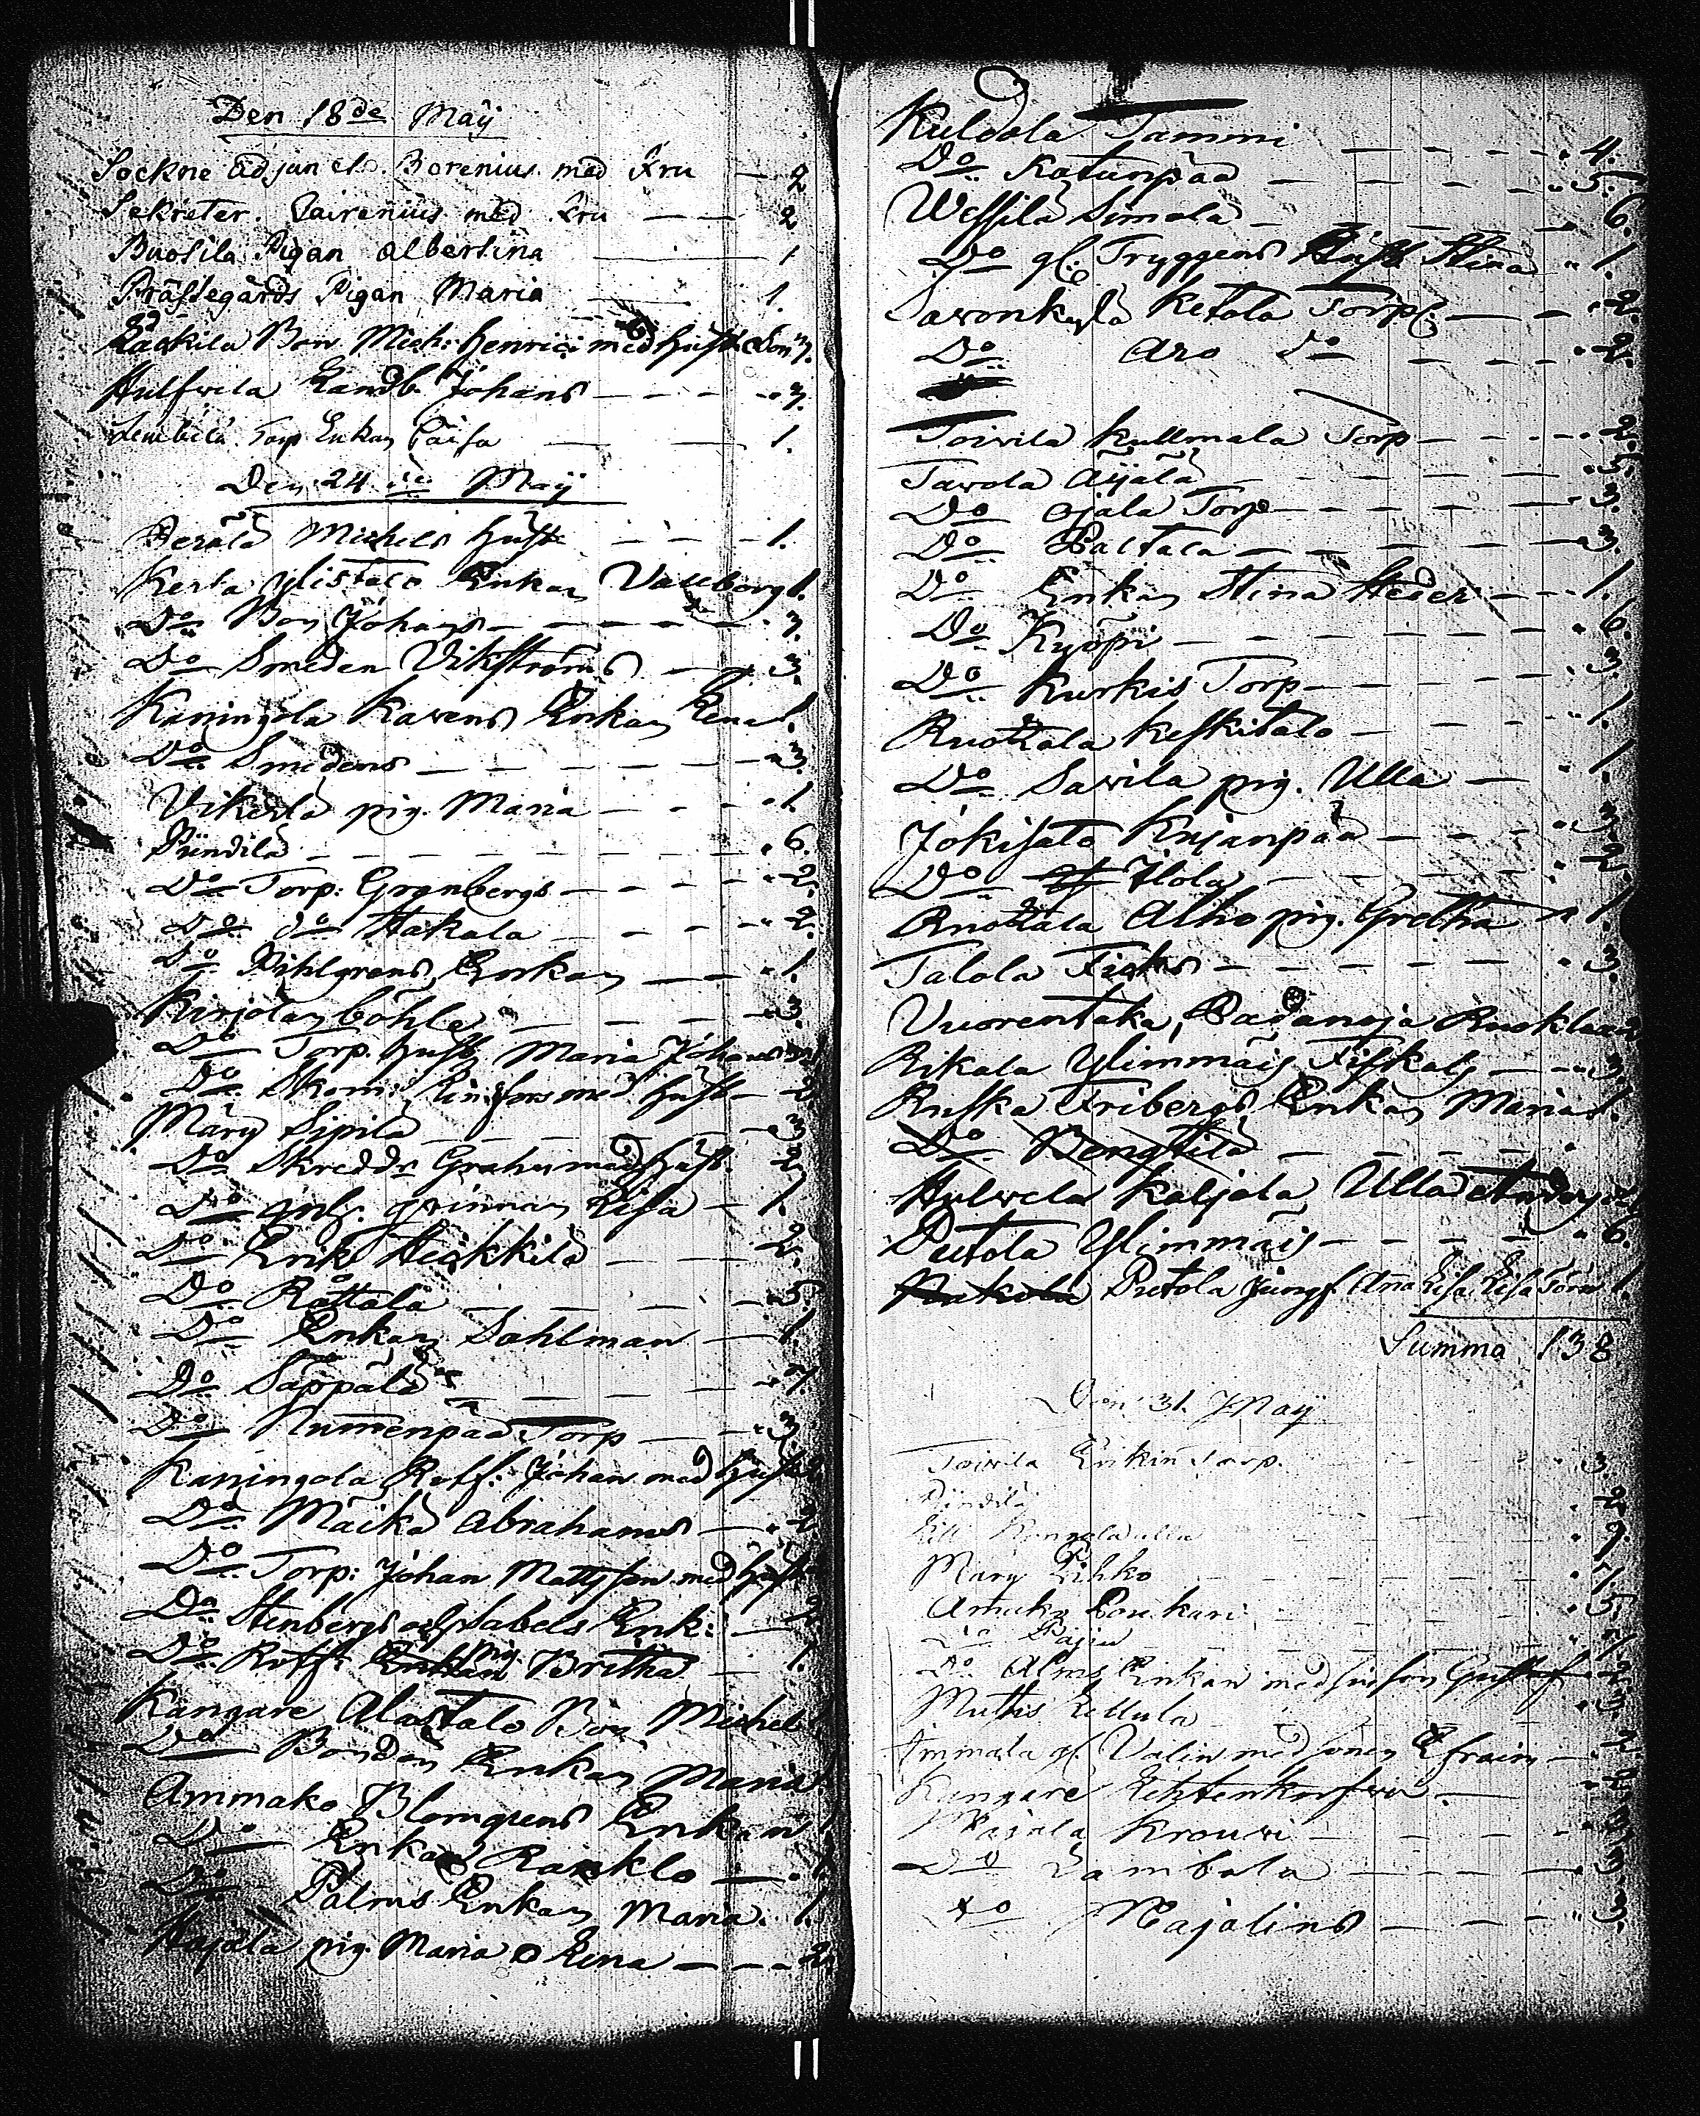 Den 18de Maÿ
Sockne Adjunct. Borenius med Fru — 2
Sekreter. Pairenius med Fru — — 2
Buosila Pigan Albertina — 1
Prästegårds Pigan Maria — 1.
Kaskila Bon. Mich: Henrici med Hust. Son 3.
Hulfwela Landb. Johans — — — 3.
Lembilä Torp Enkan Caisa — — 1.
Den 24de Maÿ
Perälä Michels Hust — — — 1.
Kerla Ylistalo Enkan Vallborg 1.
Do Bon Johans — — — — 3.
Do Smeden Vikströms — — 3.
Kaningola Karens Enkan Lena 1.
Do Smedens — — — — — 3.
Vikerla pig. Maria — — — 1.
Pündilä — — — — — — 6.
Do Torp: Grönbergs — — — 2.
Do do Hakala — — — — 2.
Do Pihlgrens Enkan — — 1.
Kirjolan böhle — — — — 3.
Do Torp. Hust. Maria Johans
Do Skom: med Hust — 2
Märy Sipilä — — — — — 3
Do Skreddr Grahn med Hust. 2
Do qvinnan Lisa — 1.
Do Erik Heikkilä — — — 2.
Do Rättälä — — — — — 5.
Do Enkan Sahlman — — 1.
Do Säppälä — — — — 7.
Do Nummenpää Torp — — 3.
Kaningola Rotf: Johan med Hust 2
Do Maikä Abrahams — — 2
Do Torp: Johan Mattsson med Hust
Do Stenbergs och Isabels Enk: — 2.
Do Rotf: Enkan pig Britha — 1.
Kangare Alastalo Bon. Michel
Do Bonden Enkan Maria
Ammako Blomqvens Enkan 1
Do Enkan Ranklo — — 1
Do Palms Enkan Maria. 1.
Hajala pig. Maria o Lena — — — 2.
Kuldola Tammi — — — — 4.
Do Katunpää — — — — 5.
Wessilä Simola — — — — 6.
Do gl: Tryggens Hust Stina 1.
Sawonkylä Ketola Torp: — — 2.
Do Aro do — — — — 2.
Toivila Kullmala Torp — — — 2.
Tawola Äijälä — — — — 5.
Do Ojala Torp — — — — 3.
Do Paltala — — — — — 3.
Do Enkan Stina Heder — — 1.
Do Kyöpi — — — — — 6.
Do Kurkis Torp — — — — 3.
Ruotzala Keskitalo — — — — 1.
Do Savila pig. Ulla — — 1.
Jokisato Kujanpää — — — — 3.
Do Ilola — — — — — 2.
Ruotzala Alho pig. Gretha — 1.
Talola Ficks — — — — — 3.
Vuorentaka, Padanoja
Rikala Ylimmäis Fiskaly — — 3.
Ruska Fribergs Enkan Maria 1.
Do Bengtilä — — — —
Hulwela Kaljala Ulla Anders
Putola Ylimmäis — — — — 6.
Putola Jungf. Ana Lisa 1.
Summa 138
Den 31. Maÿ
Toivila Erikin Torp. — — 3
Pündilä 2.
9.
Märy Pihko — — — — 7.
— — 5.
Do
Do Alms Enkan med Gustaf 2.
Muttis Kellula 3.
Ammala gl. Valin med sonen Efraim — 2.
Kangare
Majala Krouwi — — — —
Do Lambola — — — — 3.
Do Majalins — — — — 3.